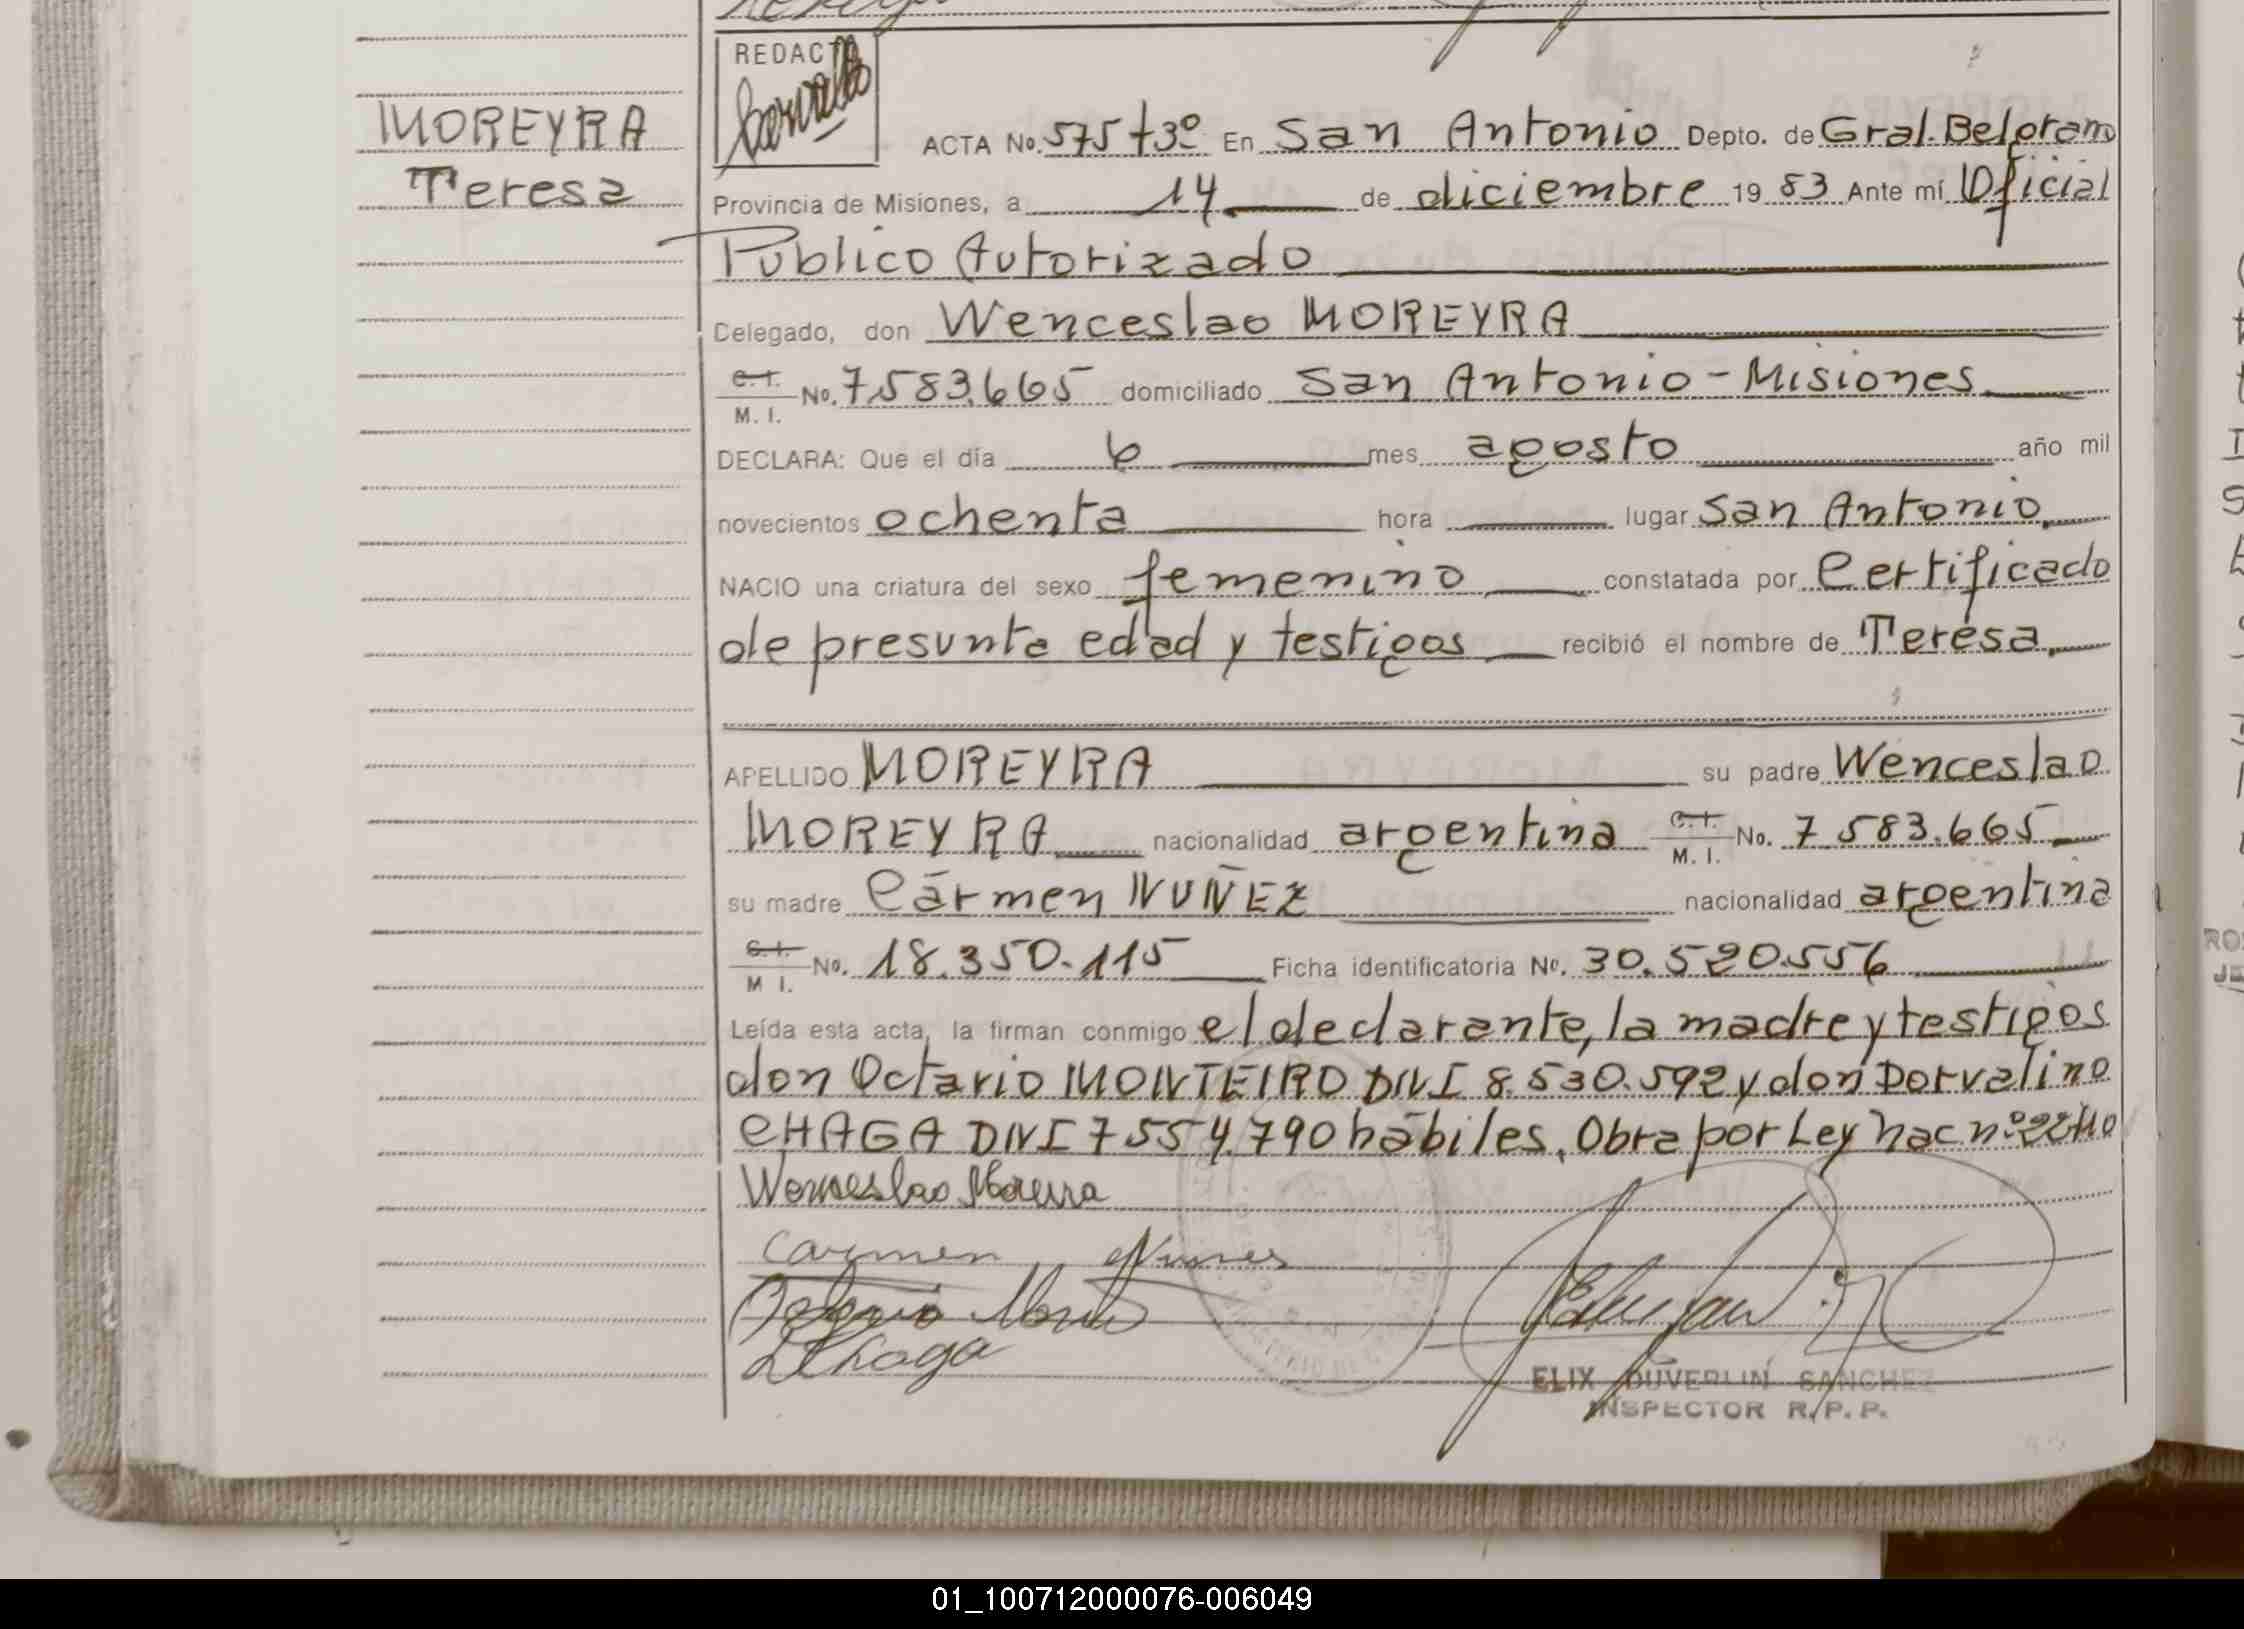 MOREYRA
Teresa
REDACT
ACTA No. 575 T3º En San Antonio Depto. de Gral. Belgrano
Provincia de Misiones, a 14 de diciembre 1983 Ante mí Oficial
Público Autorizado
Celegado, don Wenceslao MOREYRA
C. I. M. I. No. 7.583.665 domiciliado San Antonio - Misiones
DECLARA: Que el día 6 mes agosto año mil
novecientos ochenta hora lugar San Antonio
NACIO una criatura del sexo femenino constatada por Certificado
de presunta edad y testigos recibió el nombre de Teresa
APELLIDO MOREYRA su padre Wenceslao
MOREYRA nacionalidad argentina C. I. M. I. No. 7.583.665
su madre Cármen NUÑEZ nacionalidad argentina
C. I. M I. No. 18.350.115 Ficha identificatoria Nº. 30.520.556
Leída esta acta, la firman conmigo el declarante, la madre y testigos
don Octavio MONTEIRO DNI 8.530.592 y don Dorvalino
CHAGA DNI 7.554.790 hábiles. Obra por Ley nac nº
Wenceslao Moreira
Carmen Nunes
Chaga
ELIX DUVERLIN SANCHEZ
INSPECTOR R. P. P.
01_100712000076-006049